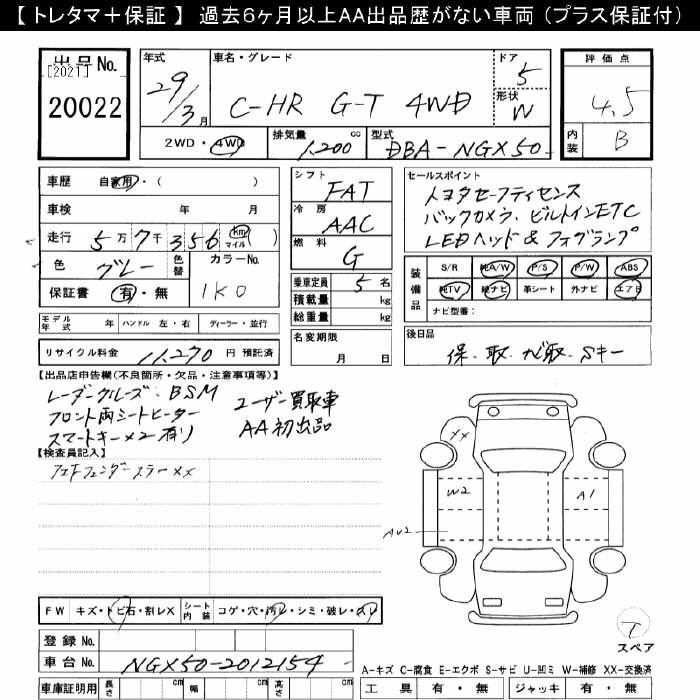 【 トレタマ＋保証 】 過去6ヶ月以上AA出品歴がない車両（プラス保証付）
出品No.
[2021]
20022
年式 車名・グレード ドア 評価点
29/3月 C-HR G-T 4WD 5 4.5
形状 W
2WD・4WD 排気量 1,200 cc 型式 DBA-NGX50 内装 B
車歴 自家用・( )
車検 年 月
走行 5万7千356 km マイル ( )
色 グレー 色替 カラーNo. 1K0
保証書 有・無
シフト FAT
冷房 AAC
燃料 G
乗車定員 5 名
積載量 kg
総重量 kg
セールスポイント
トヨタセーフティセンス
バックカメラ、ビルトインETC
LEDヘッド&フォグランプ
装備品 S/R 純A/W P/S P/W ABS
純TV 純ナビ 革シート 外ナビ エアB
ナビ型番：
モデル年式 年 ハンドル 左・右 ディーラー・並行
名変期限 月 日
後日品
保、取、ナビ取、Sキー
リサイクル料金 11,270 円 預託済
【出品店申告欄(不良箇所・欠品・注意事項等)】
レーダークルーズ、BSM
フロント両シートヒーター
スマートキー×2有り
ユーザー買取車
AA初出品
【検査員記入】
XX
W2 A1
AU2
FW キズ・トビ石・割レX シート内装 コゲ・穴・汚レ・シミ・破レ・スレ
登録 No.
車台 No. NGX50-2012154
車庫証明用 長さ cm 幅 cm 高さ cm
T
スペア
A-キズ C-腐食 E-エクボ S-サビ U-凹ミ W-補修 XX-交換済
工具 有・無 ジャッキ 有・無